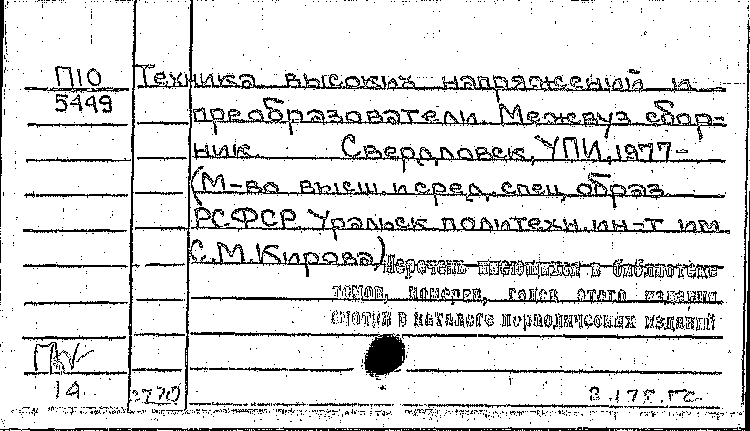 П10 Техника высоких напряжений и
5449 преобразователи. Межвуз. сбор-
ник. Свердловск, УПИ, 1977-
(М-во высш. и сред. спец. образ.
РСФСР. Уральск. политехн. ин-т им.
С.М. Кирова)
Перечень имеющихся в библиотеке
томов, номеров, годов этого издания
смотри в каталоге периодических изданий
14 2770